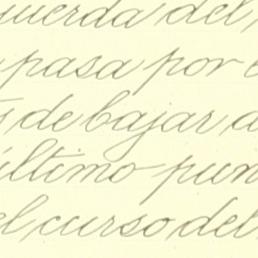 quierda del,
pasa por e
s de bajar a
último pun
el curso del